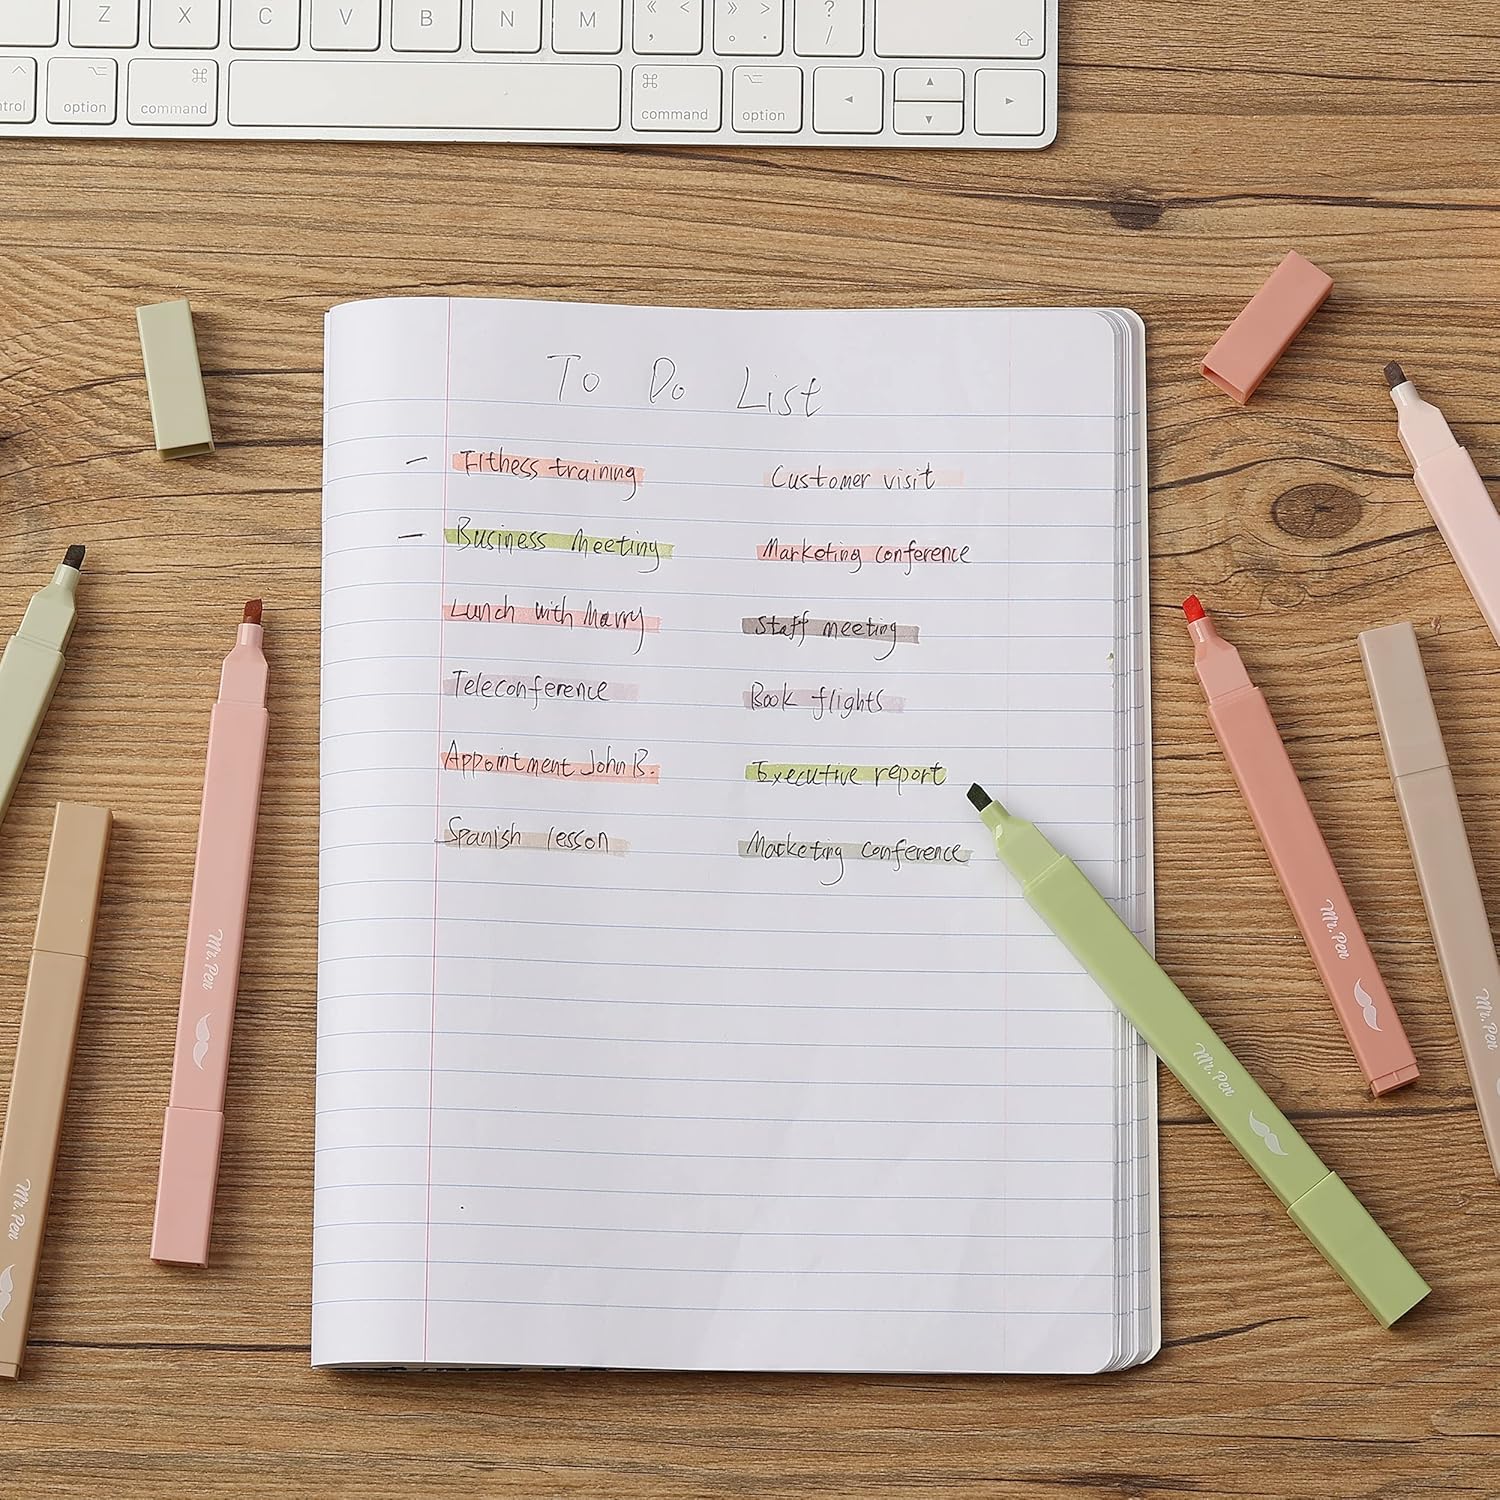 Z X C V B N M « < , » > . ? /
ntrol option command command option
To Do List
- Fithess training Customer visit
- Business Meeting Marketing conference
Lunch with Marry Staff meeting
Teleconference Book flights
Appointment John B. Executive report
Spanish lesson Marketing conference
Mr. Pen
Mr. Pen
Mr. Pen
Mr. Pen
Mr. Pen